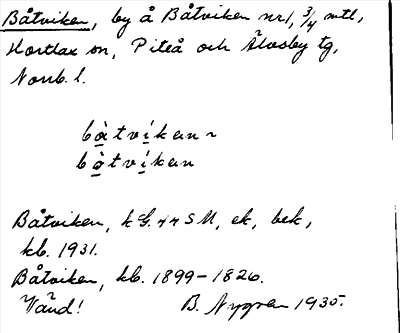 Båtviken, by å Båtviken nr 1, 3/4 mtl,
Hortlax sn, Piteå och Älvsby tg,
Norrb. l.
bàtvíken ~
bòtvíken
Båtviken, kG. 44 SM, ek, bek,
kb. 1931.
Båtviken, kb. 1899-1826.
Vänd! B. Nygren 1935.